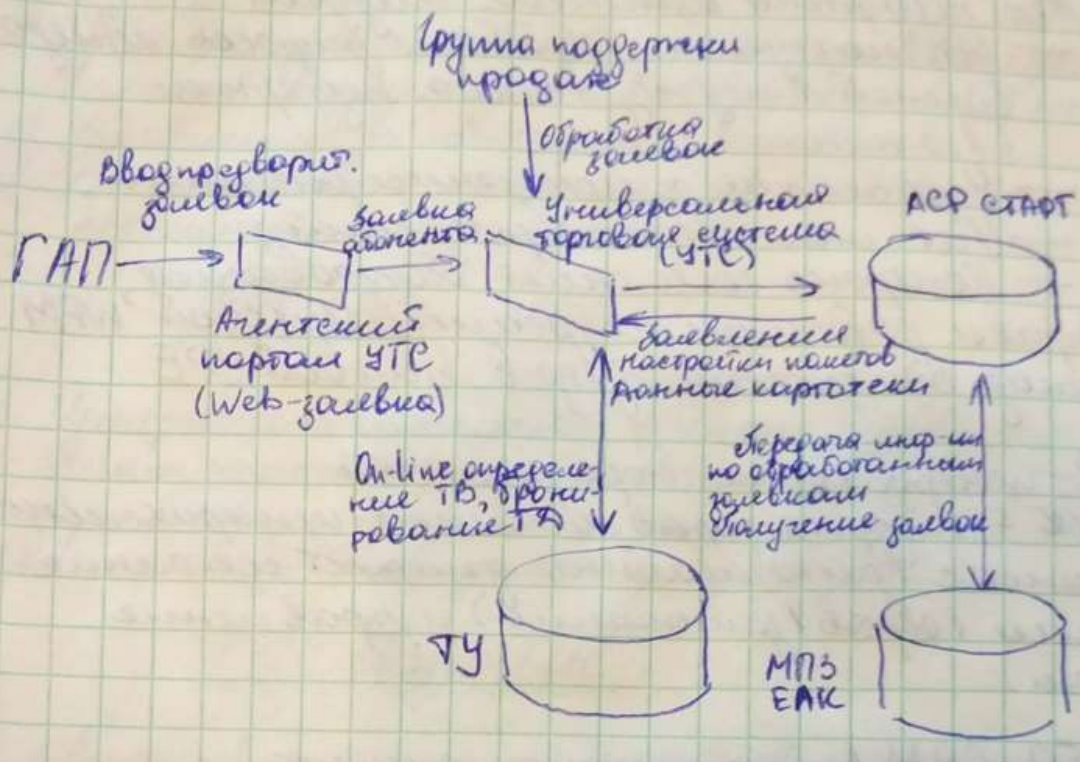 Группа поддержки
продаж
Обработка
заявок
Ввод предварит.
заявок
ГАП
Заявка
абонента
Универсальная
торговая система
(УТС)
АСР СТАРТ
Агентский
портал УТС
(Web-заявка)
Заявления
Настройки пакетов
Данные картотеки
On-line определе-
ние ТВ, брони-
рование ТД
Передача инф-ии
по обработанным
заявкам
Получение заявок
ТУ
МПЗ
ЕАК